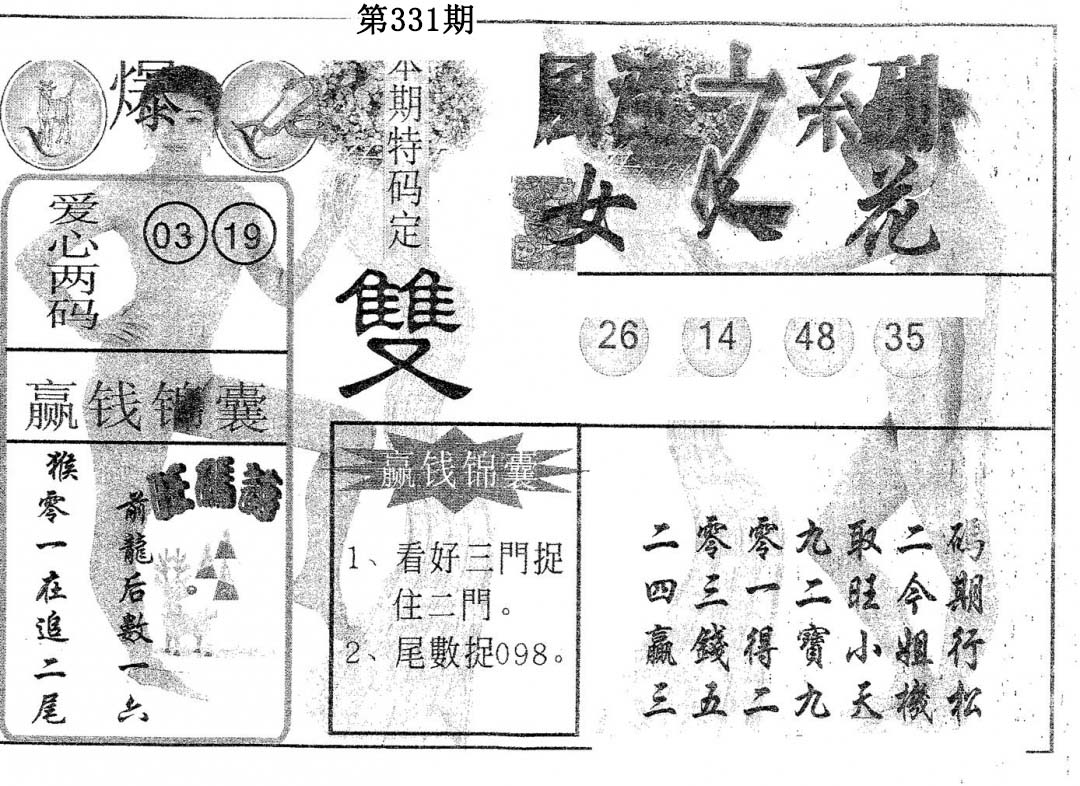 第331期
爆
本期特码定
雙
之系列
女人花
爱心两码
03 19
26 14 48 35
赢钱锦囊
猴零一在追二尾
前龍后數一六
旺碼詩
赢钱锦囊
1、看好三門捉
住二門。
2、尾數捉098。
二零零九取二码
四三一二旺今期
贏錢得寶小姐行
三五二九天機松